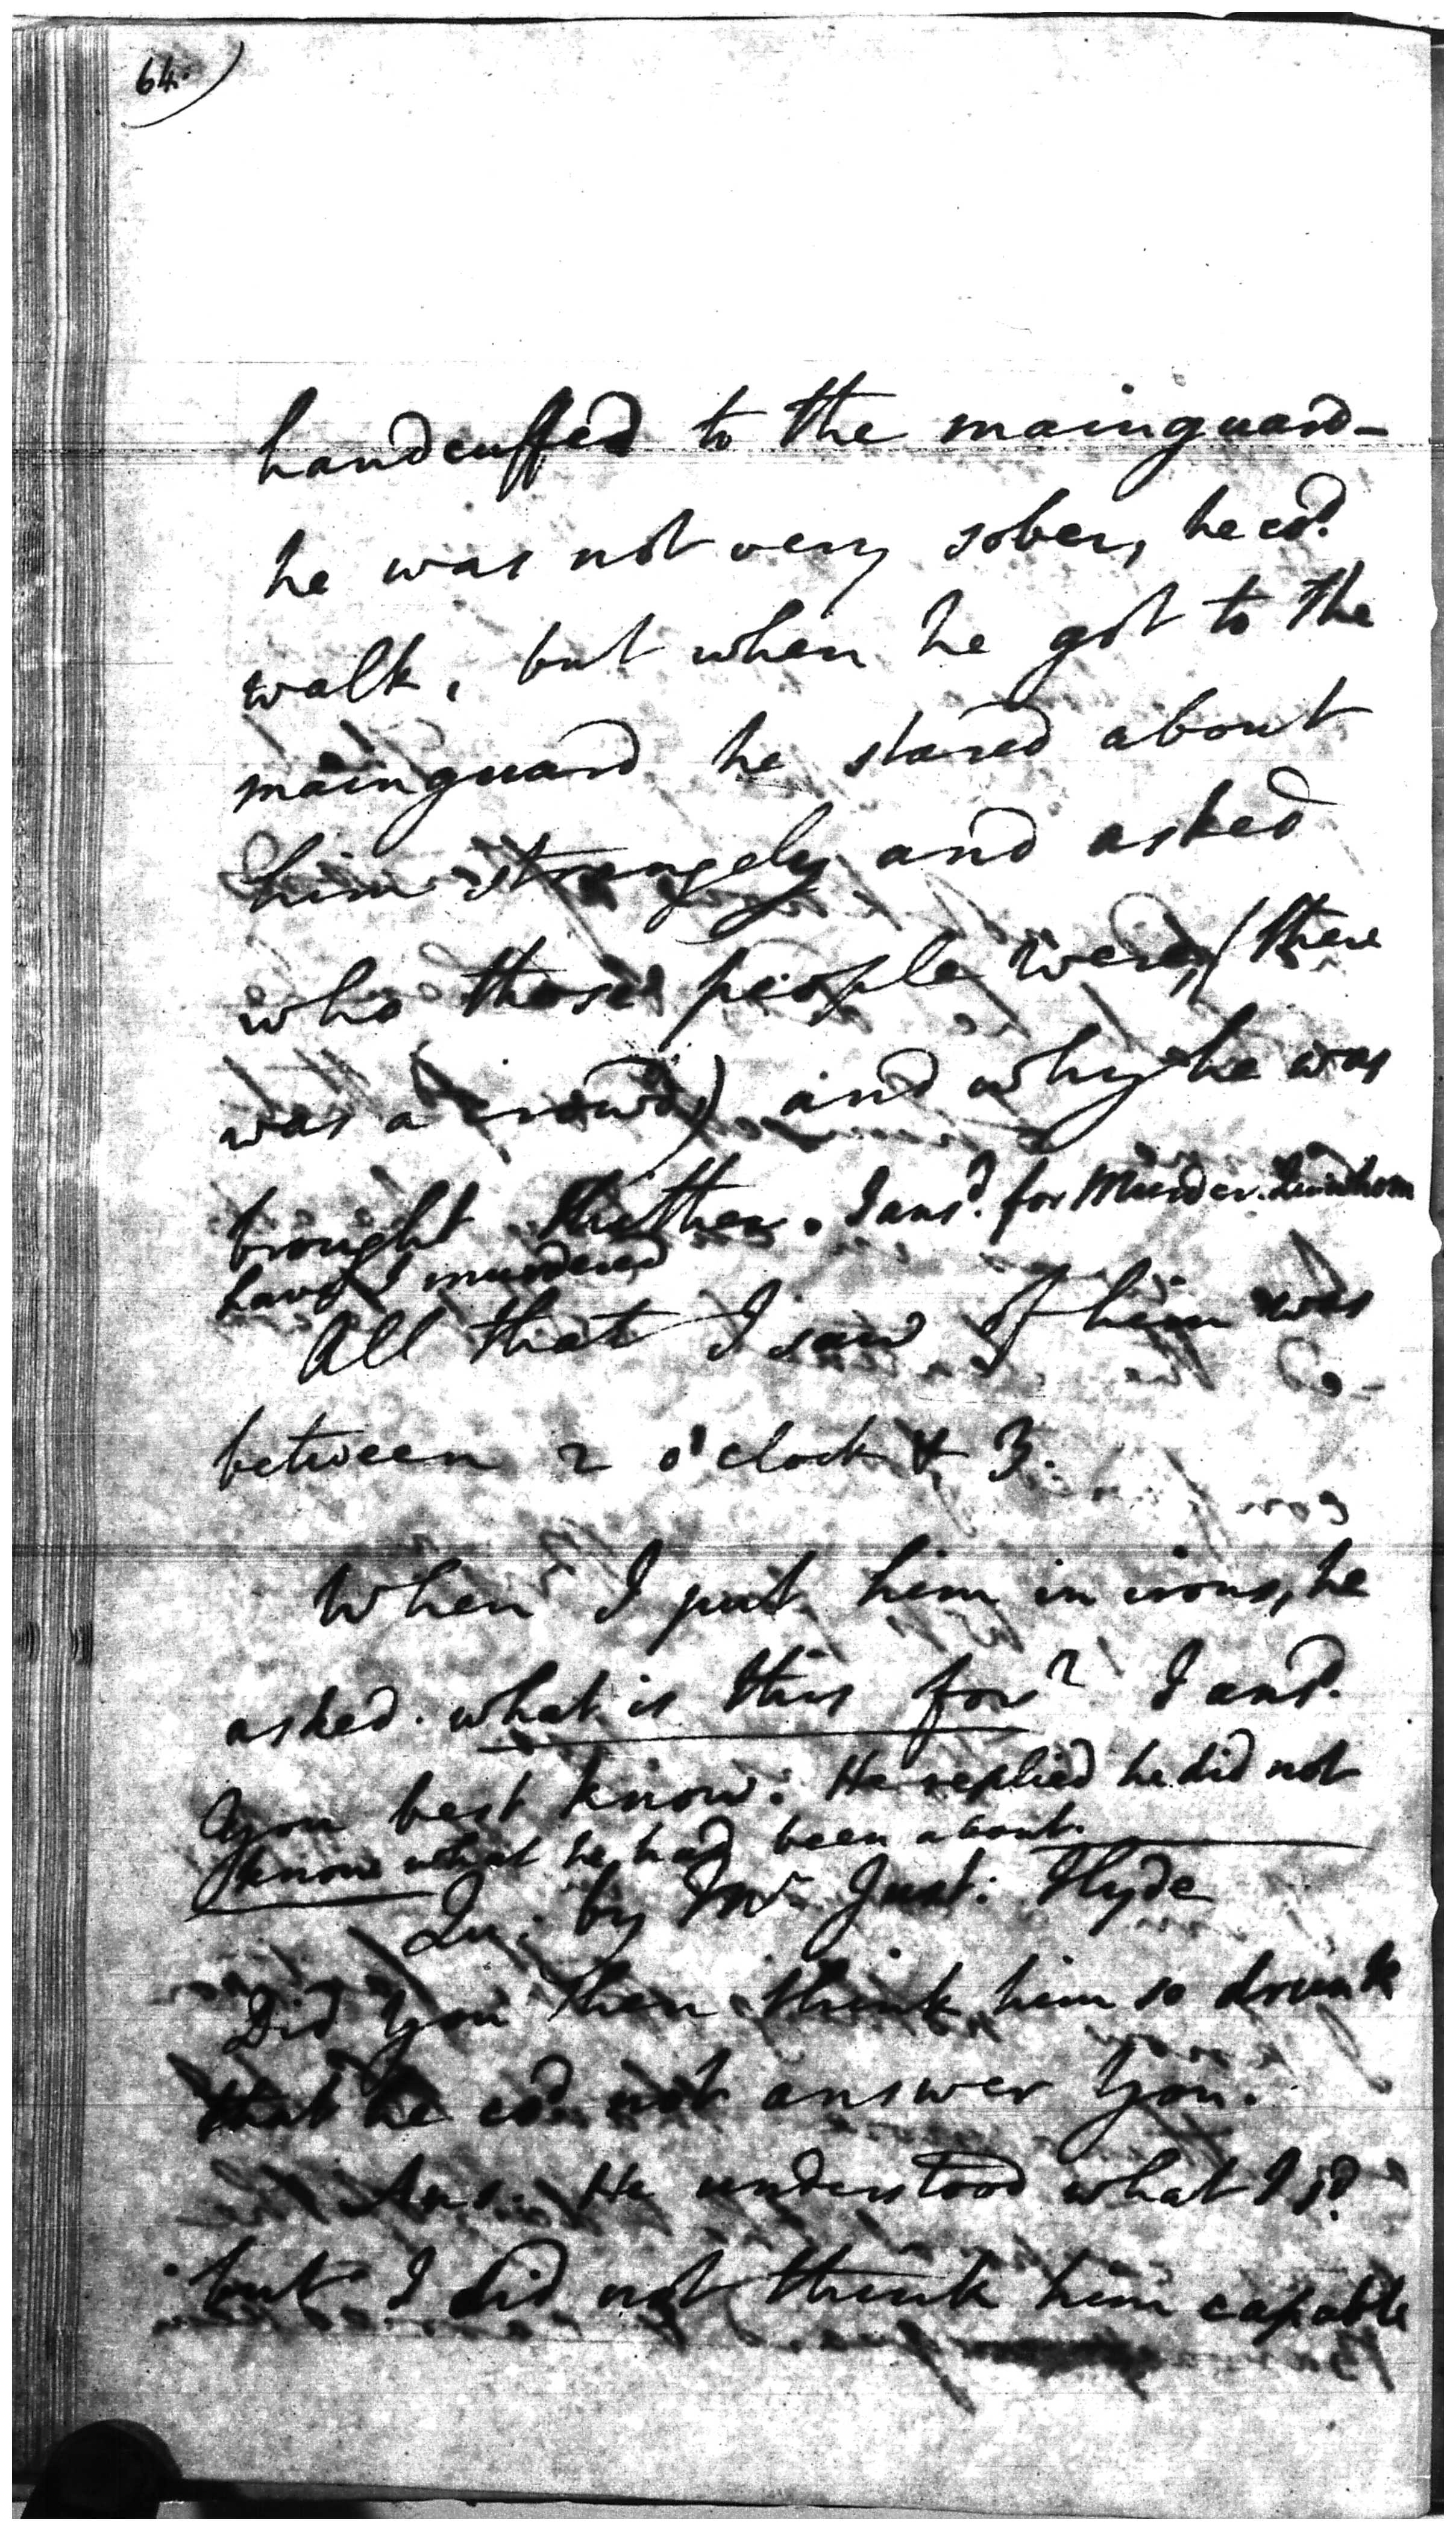 64.
handcuffed to the mainguard-
he was not very sober, he cod.
walk, but when he got to the
mainguard he stared about
him strangely and asked
who those people were, (there
was a crowd) and why he was
brought thither. I ansd. for Murder. whom
have I murdered
All that I saw of him was
between 2 o'clock & 3.
When I put him in irons, he
asked. what is this for? I ansd.
you best know. He replied he did not
know what he had been about.
Qu: by Mr Just: Hyde
Did you then think him so drunk
that he cod. not answer you.
Ans. He understood what I sd.
but I did not think him capable